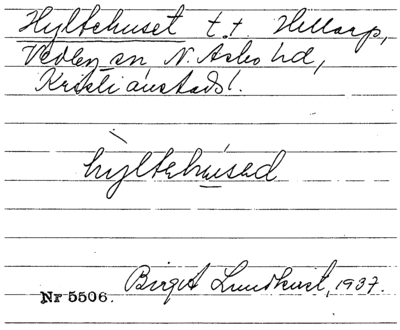 Hyltehuset t.t. Hillarp,
Vedby sn N. Åsbo hd,
Kristianstads l.
hỳltehúsed
Nr 5506. Birgit Lundkvist, 1937.